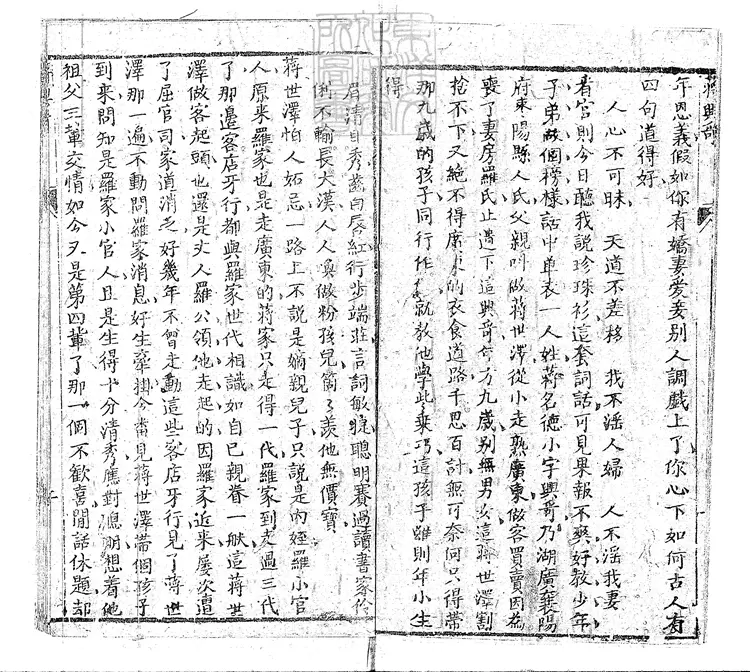 蔣興哥
年恩義假如你有嬌妻爱妾別人調戲上了你心下如何古人有
四句道得好
人心不可昧　天道不差移　我不淫人婦　人不淫我妻
看官則今日聽我說珍珠衫這套詞話可見果報不爽好教少年
子弟做個榜樣話中单表一人姓蔣名德小字興哥乃湖廣襄陽
府棗陽縣人氏父親叫做蔣世澤從小走熟廣東做客買賣因為
喪了妻房羅氏止遺下這興哥年方九歲别無男女這蔣世澤割
捨不下又絶不得廣東的衣食道路千思百計無可奈何只得帶
那九歲的孩子同行作伴就教他學些乘巧這孩子雖則年小生
得
眉清目秀齒白唇紅行步端莊言詞敏捷聰明賽過讀書家伶
俐不輸長大漢人人喚做粉孩兒箇了羨他無價寶
蔣世澤怕人妬忌一路上不說是嫡親兒子只說是内姪羅小官
人原来羅家也是走廣東的蔣家只走得一代羅家到走過三代
了那邊客店牙行都與羅家世代相識如自己親眷一般這蔣世
澤做客起頭也還是丈人羅公領他走起的因羅家近来屡次遭
了屈官司家道消乏好幾年不曾走動這些客店牙行見了蔣世
澤那一遍不動問羅家消息好生牽掛今番見蔣世澤帶個孩子
到来問知是羅家小官人且是生得十分清秀應對聰明想着他
祖父三輩交情如今又是第四輩了那一個不歡喜閒話休題却